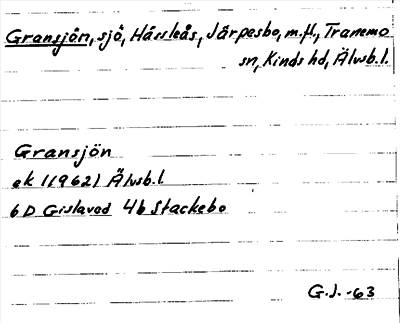 Gransjön, sjö, Hässleås, Järpesbo, m.fl., Tranemo
sn, Kinds hd, Älvsb.l.
Gransjön
ek (1962) Älvsb.l.
6 D Gislaved 4b Stackebo
G.J. -63